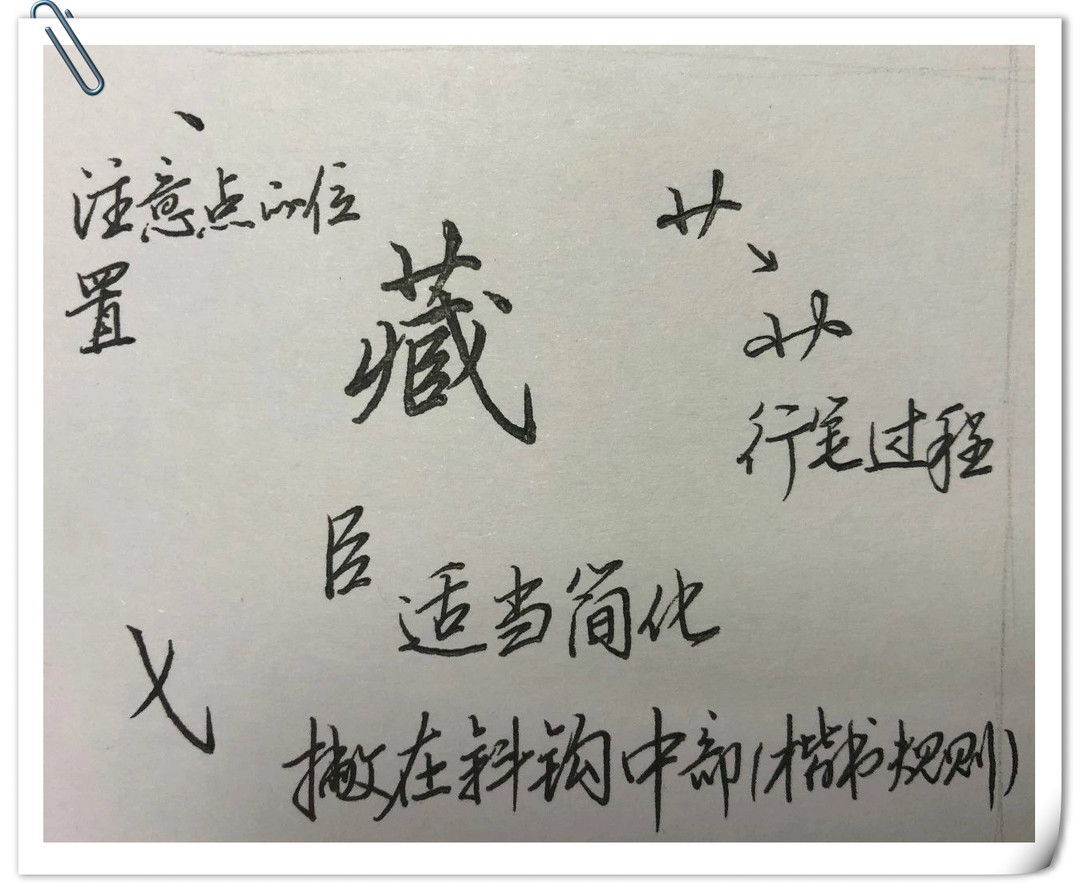 丶
注意点的位
置
藏
艹
艹
行笔过程
臣
适当简化
撇在斜钩中部(楷书规则)